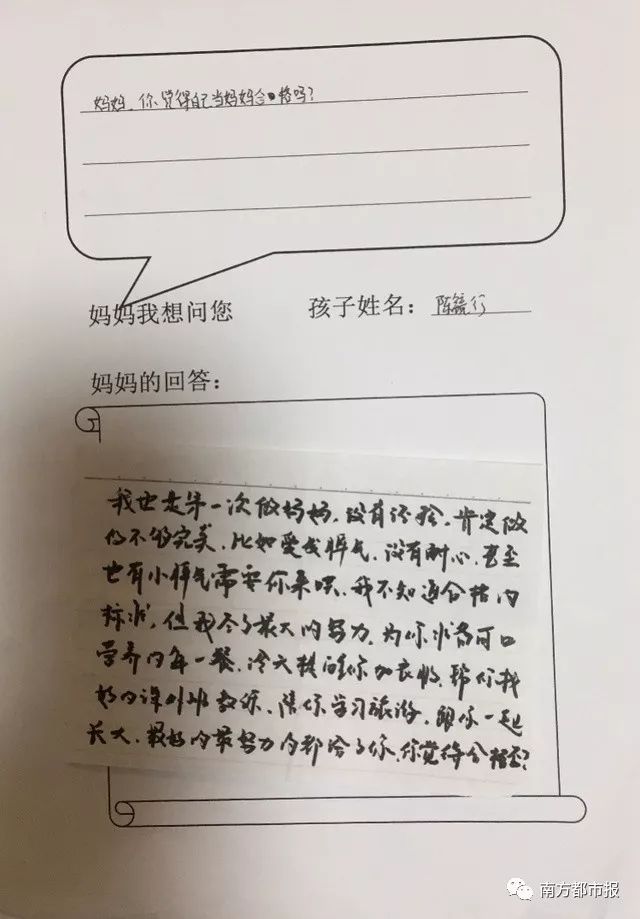 妈妈，你觉得自己当妈妈合格吗？
妈妈我想问您
孩子姓名：陈毓行
妈妈的回答：
我也是第一次做妈妈，没有经验，肯定做
的不够完美，比如爱发脾气，没有耐心，甚至
也有小脾气需要你来哄，我不知道合格的
标准，但我尽了最大的努力，为你准备可口
营养的每一餐，冷天提醒你加衣服，帮你找
好的培训班教练，陪你学习旅游，跟你一起
长大，最好的最努力的都给了你，你觉得合格否？
南方都市报